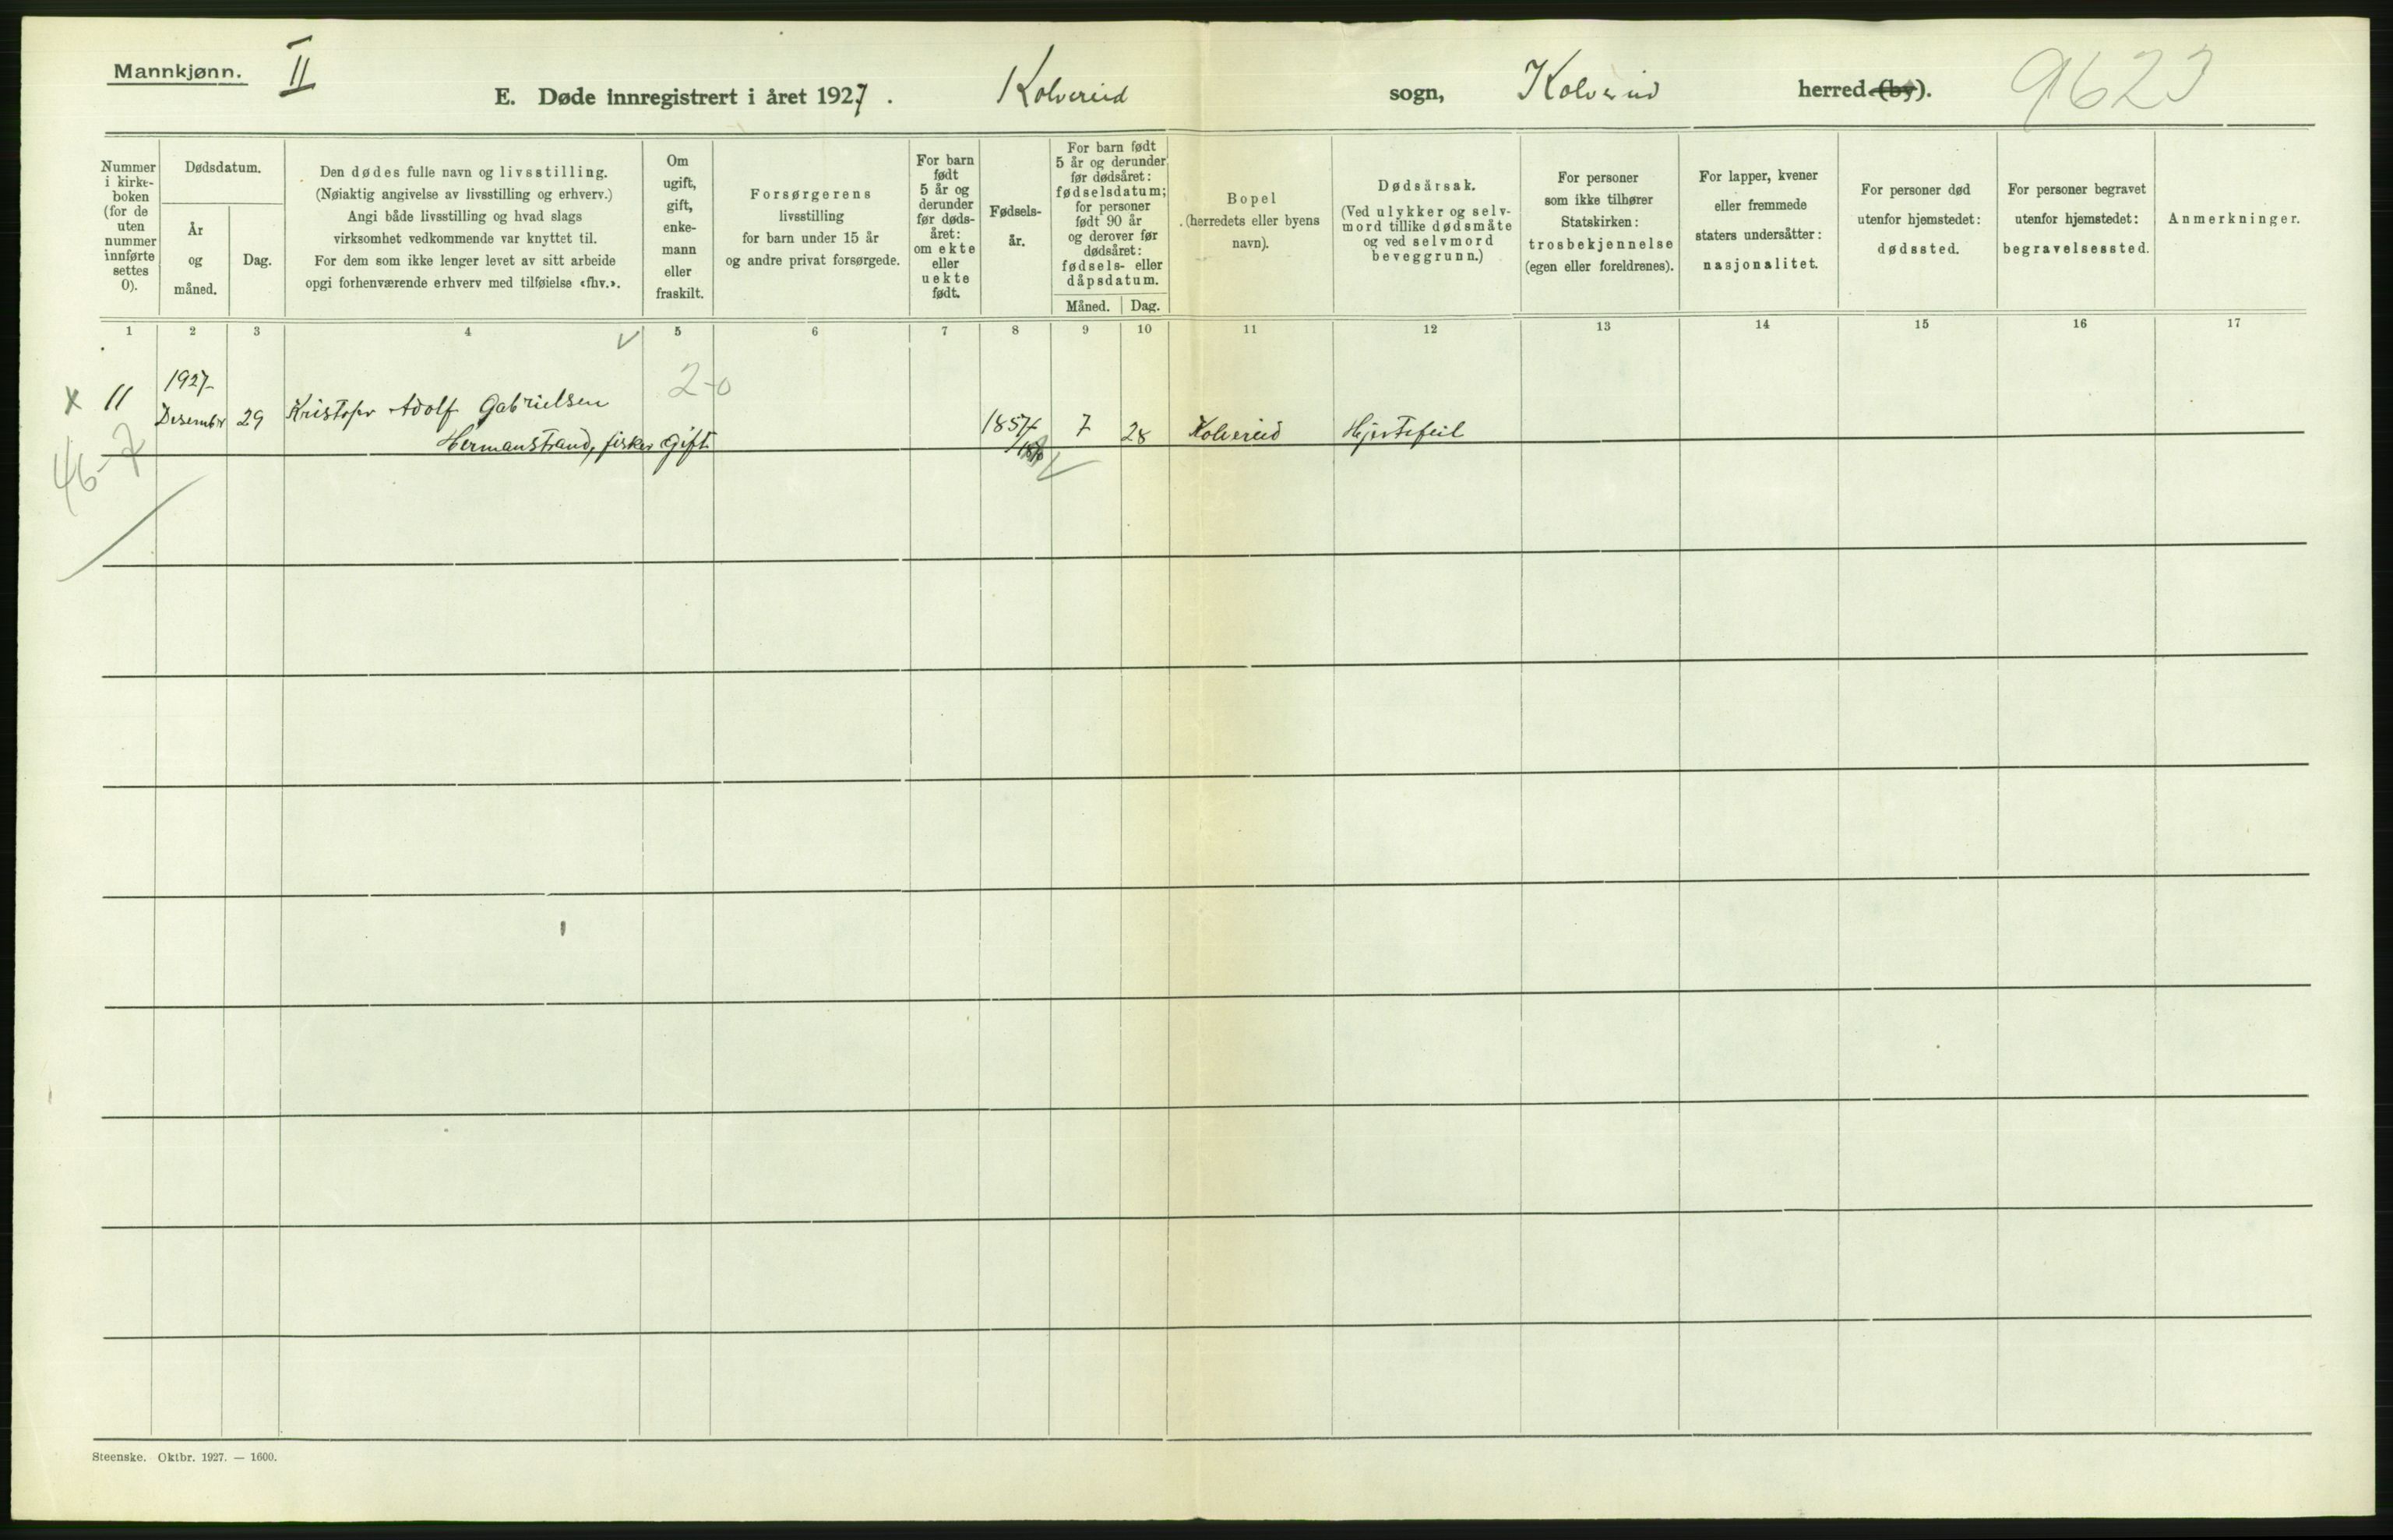 Mannkjønn. II
E. Døde innregistrert i året 1927. Kolvereid sogn, Kolvereid herred (by). 9623
Nummer i kirke-boken (for de uten nummer innførte settes 0).
Dødsdatum.
År og måned.
Dag.
Den dødes fulle navn og livsstilling.
(Nøiaktig angivelse av livsstilling og erhverv.)
Angi både livsstilling og hvad slags
virksomhet vedkommende var knyttet til.
For dem som ikke lenger levet av sitt arbeide
opgi forhenværende erhverv med tilføielse «fhv.».
Om ugift, gift, enke-mann eller fraskilt.
Forsørgerens
livsstilling
for barn under 15 år
og andre privat forsørgede.
For barn født 5 år og derunder før døds-året: om ekte eller uekte født.
Fødsels-år.
For barn født
5 år og derunder
før dødsåret:
fødselsdatum;
for personer
født 90 år
og derover før
dødsåret:
fødsels- eller
dåpsdatum.
Måned. Dag.
Bopel
(herredets eller byens
navn).
Dødsårsak.
(Ved ulykker og selv-
mord tillike dødsmåte
og ved selvmord
beveggrunn.)
For personer
som ikke tilhører
Statskirken:
trosbekjennelse
(egen eller foreldrenes).
For lapper, kvener
eller fremmede
staters undersåtter:
nasjonalitet.
For personer død
utenfor hjemstedet:
dødssted.
For personer begravet
utenfor hjemstedet:
begravelsessted.
Anmerkninger.
1 2 3 4 5 6 7 8 9 10 11 12 13 14 15 16 17
1927 2-0
x 11 Desember 29 Kristofer Adolf Gabrielsen 1857 7 28 Kolvereid Hjertefeil
Hermanstrand, fisker Gift
46-7
Steenske. Oktbr. 1927. — 1600.